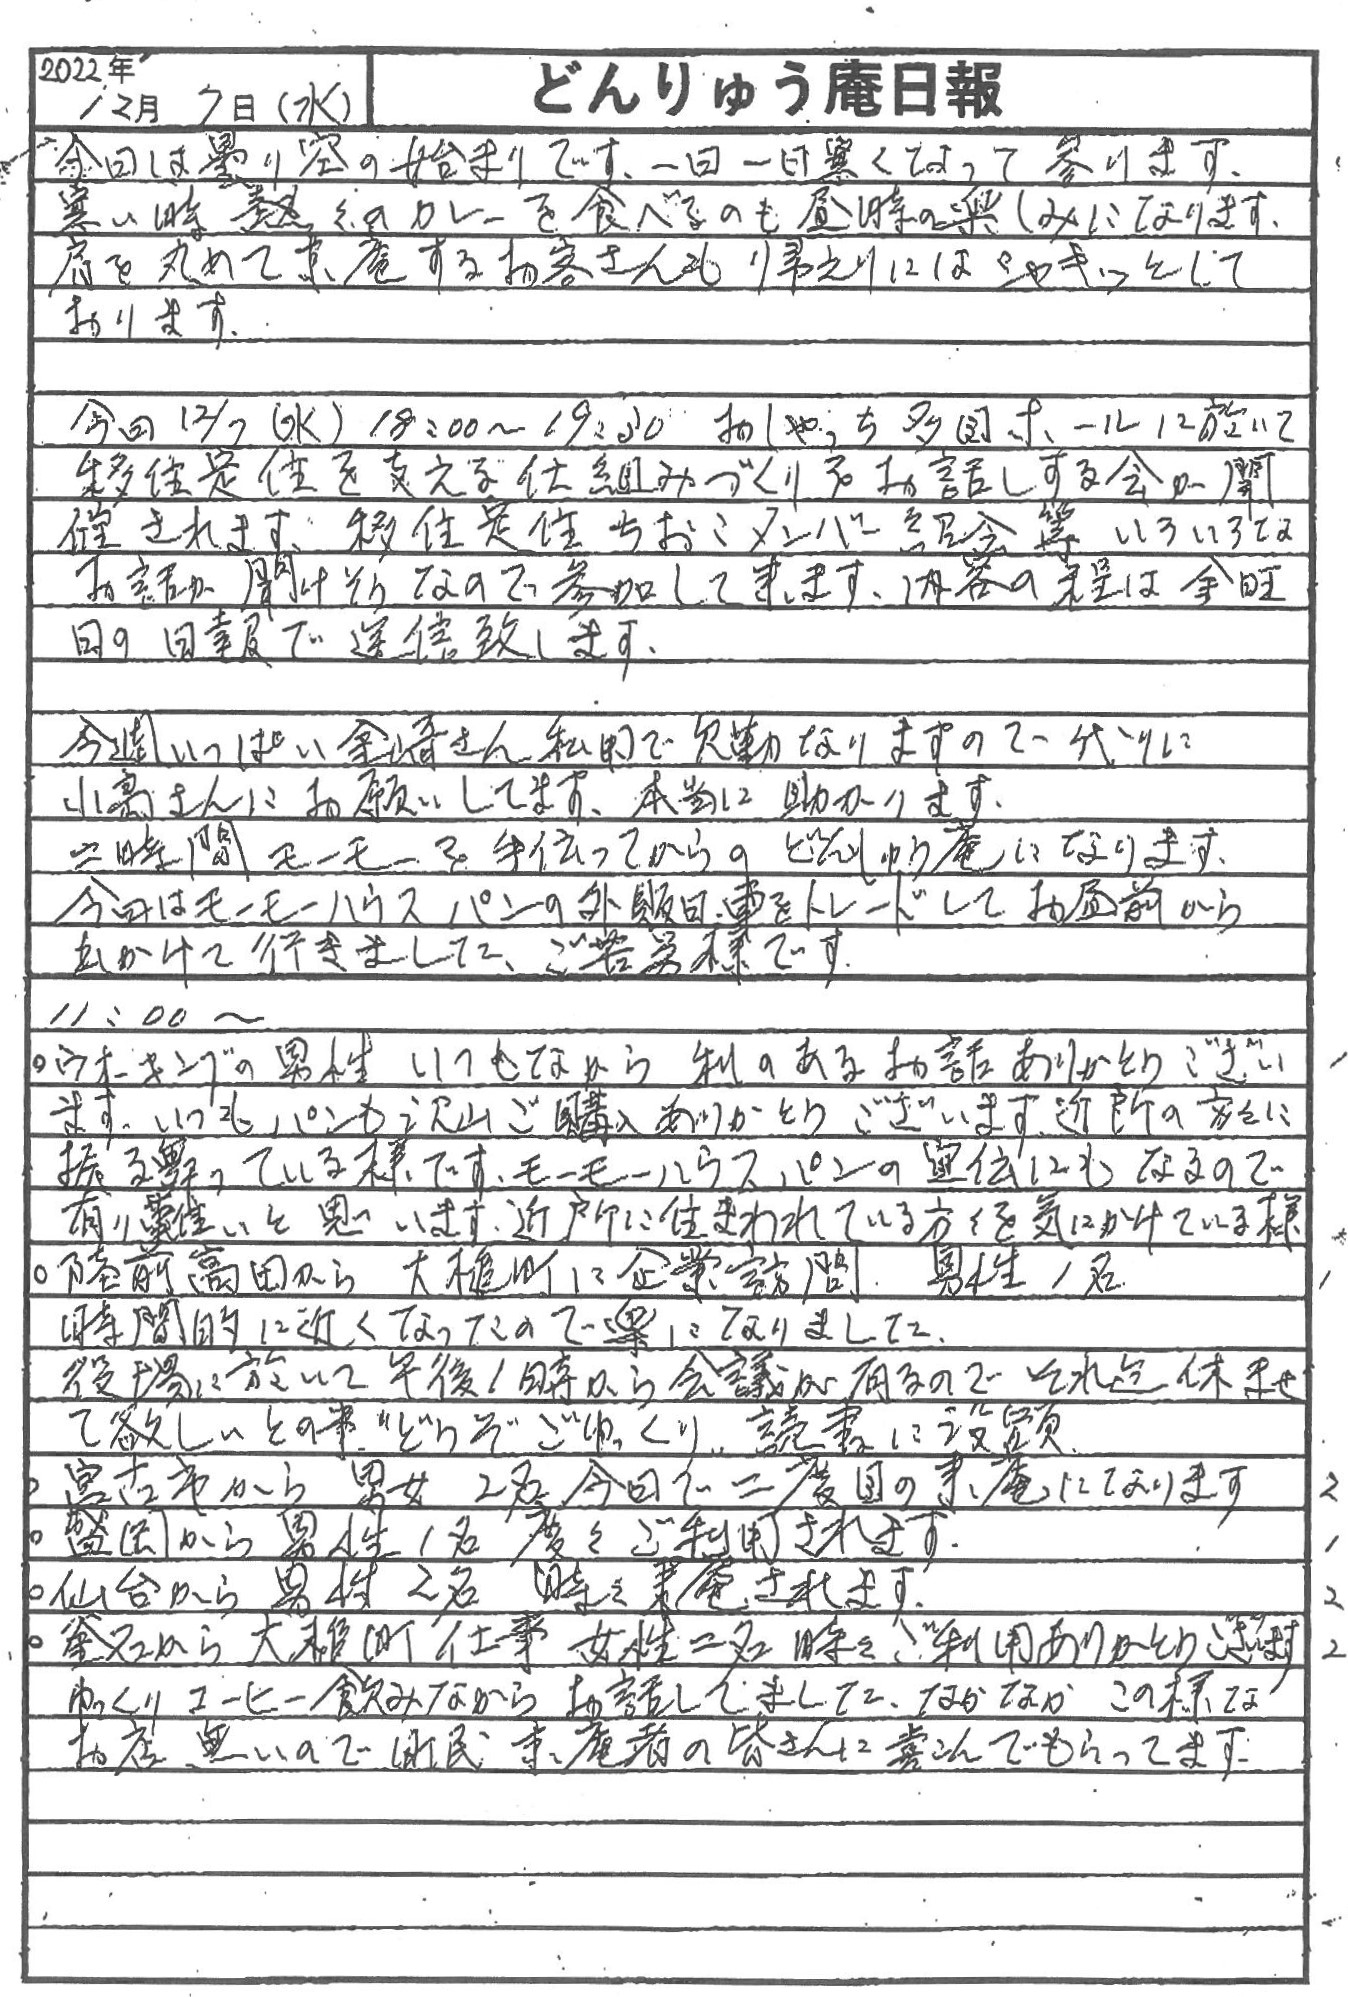 2022年
12月 7日(水)
どんりゅう庵日報
今日は曇り空の始まりです、一日一日寒くなって参ります、
寒い時熱々のカレーを食べるのも昼時の楽しみになります、
肩を丸めて来庵するお客さんもり帰えりにはシャキッとして
おります、
今日12/7(水)18:00〜19:30 おしゃっち多目ホールに於いて
移住定住を支える仕組みづくりをお話しする会が開
催されます、移住定住ちおこメンバー紹介等いろいろな
お話が聞けそうなので参加して来ます、内容の程は
日の日報で送信致します、
今週いっぱい金崎さん私用で欠勤なりますので代りに
小高さんにお願いしてます、本当に助かります、
二時間モーモーを手伝ってからのどんりゅう庵になります、
今日はモーモーハウスパンの外販日、車をトレードしてお昼前から
出かけて行きました、ご苦労様です、
11:00〜
○ウオーキングの男性 いつもながら 利のあるお話ありがとうござい
ます、いつもパンも沢山ご購入ありがとうございます、近所の方々に
振る舞っている様です、モーモーハウスパンの宣伝にもなるので
有り難いと思います、近所に住まわれている方々を気にかけている様
○陸前高田から 大槌町に企業訪問 男性1名 1
時間的に近くなったので楽になりました、
役場に於いて午後1時から会議が有るのでそれ迄休ませ
て欲しいとの事、"どうぞごゆっくり" 読書に没頭、
○宮古市から 男女 2名 今日で二度目の来庵になります 2
○盛岡から 男性1名 度々ご利用されます、 1
○仙台から 男性2名 時々来庵されます、 2
○釜石から大槌町仕事 女性二名 時々ご利用ありがとうございます 2
ゆっくりコーヒー飲みながらお話してました、なかなかこの様な
お店無いので町民来庵者の皆さんに喜こんでもらってます、